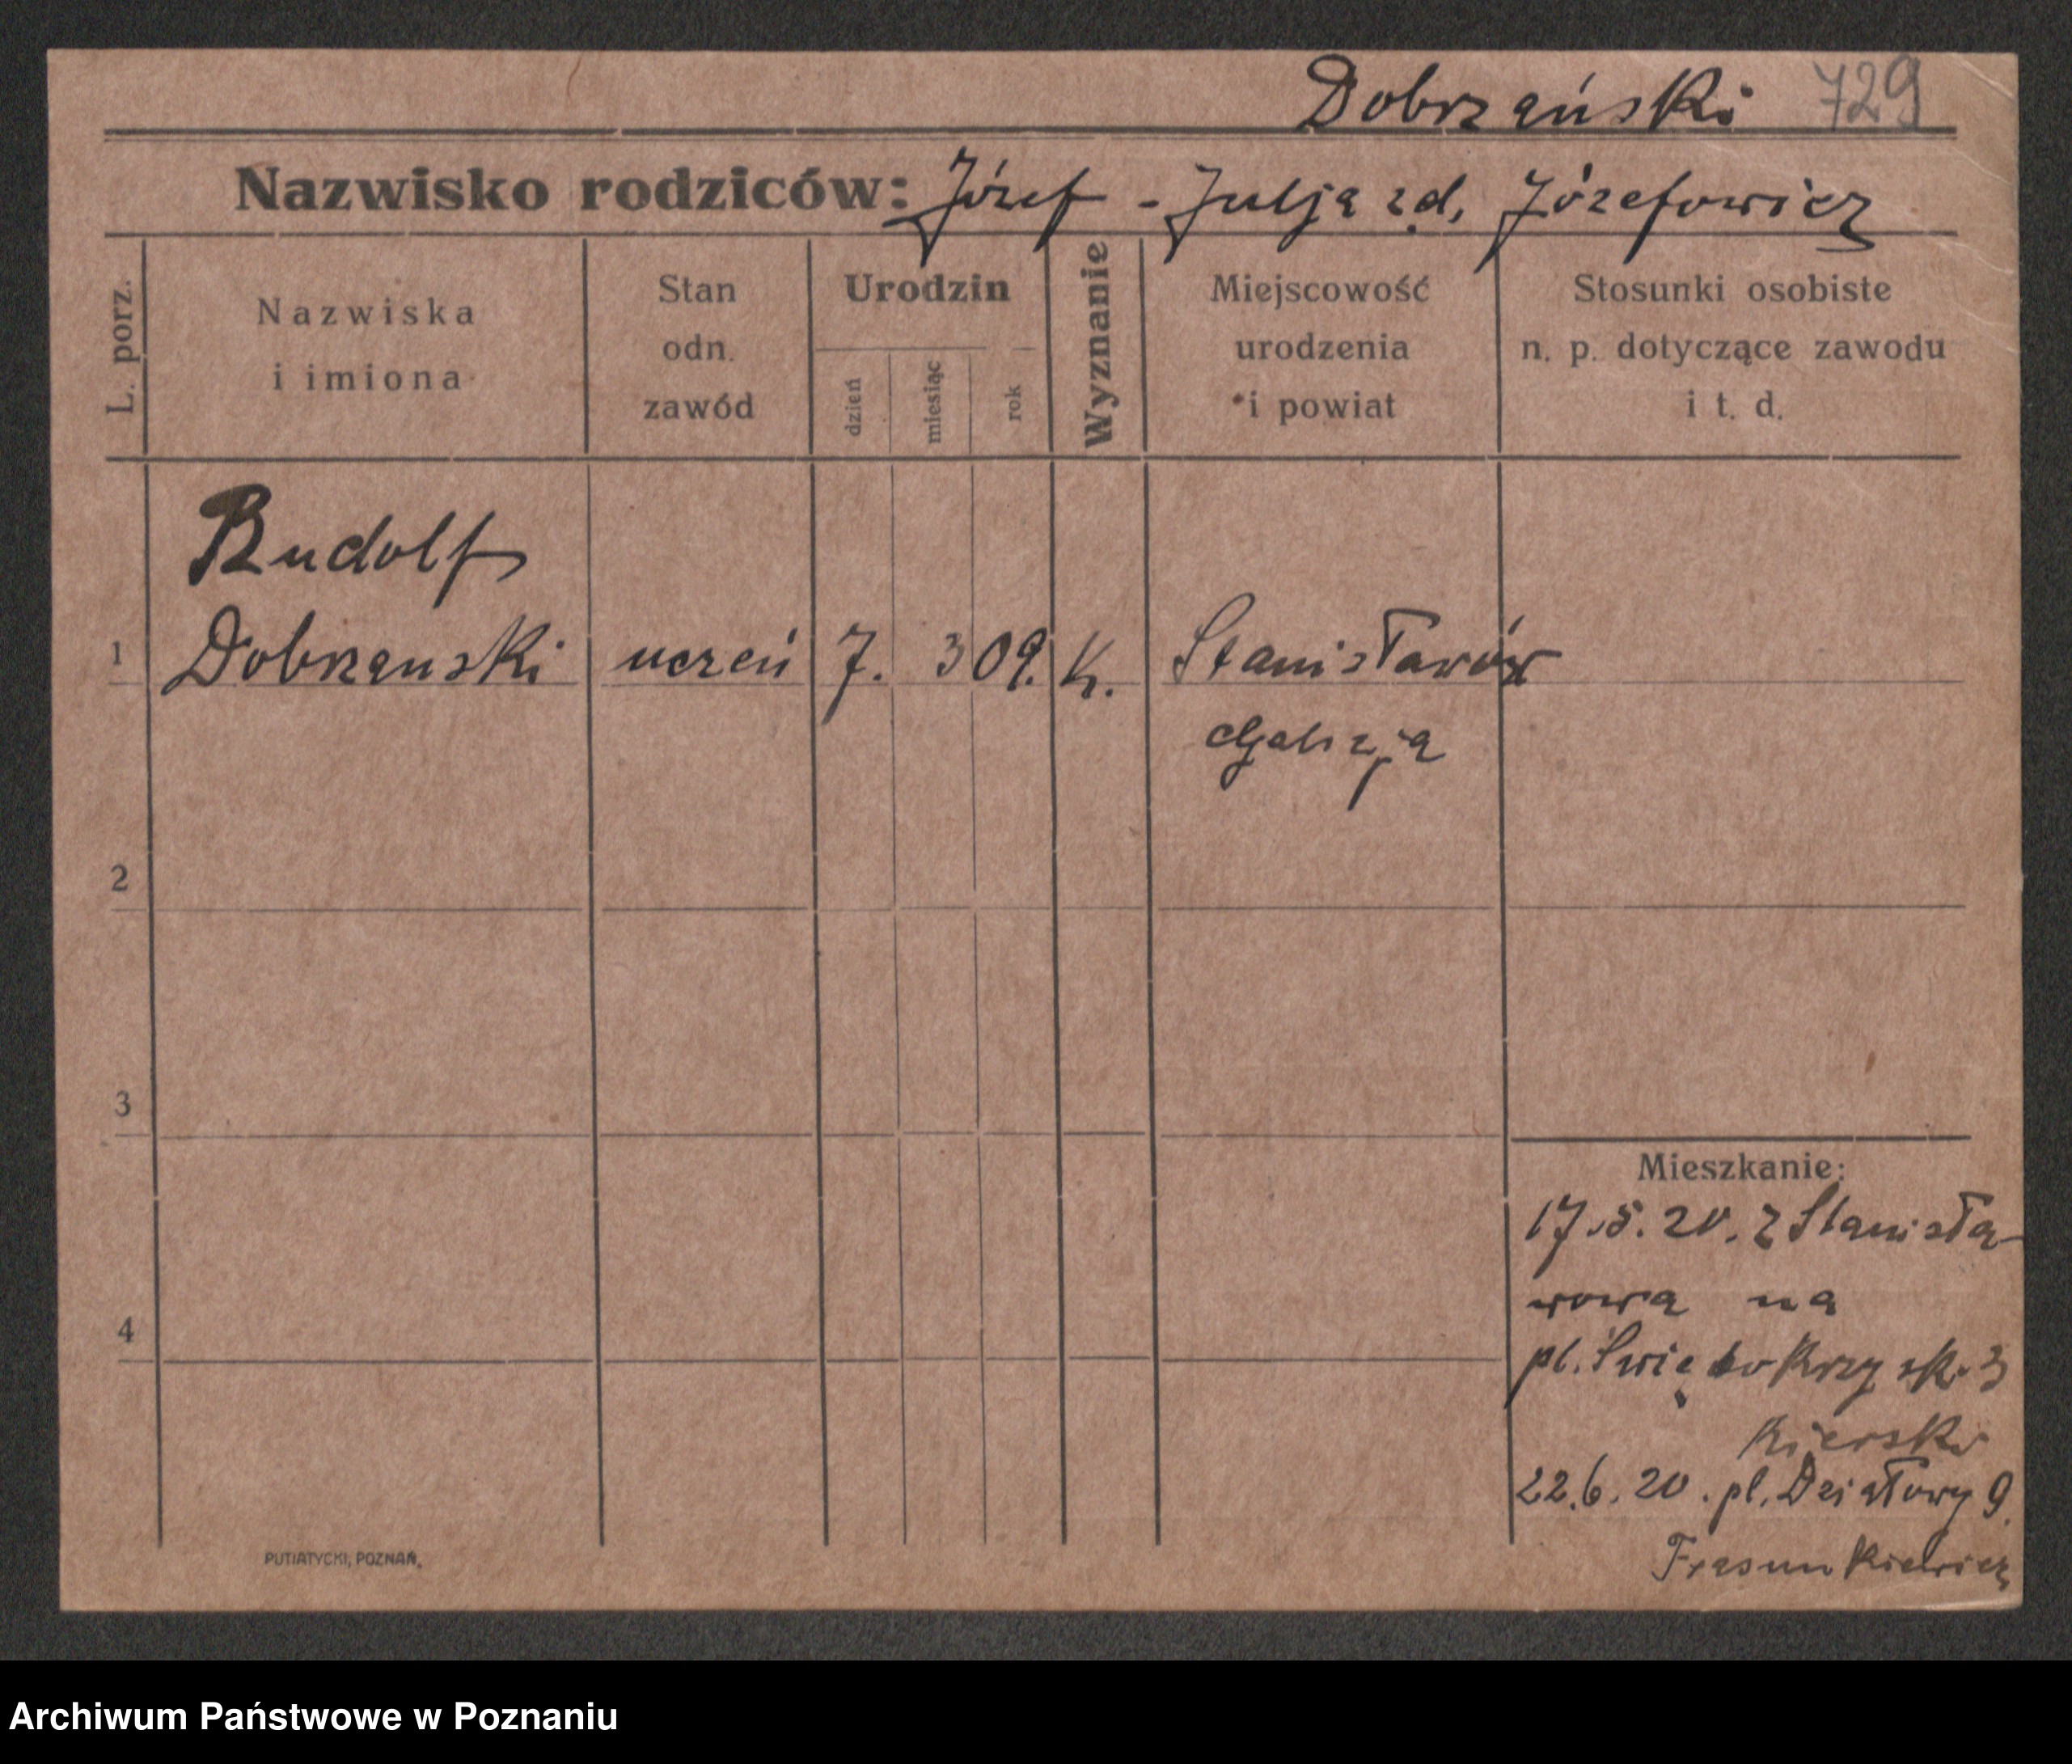 Dobrzański 729
Nazwisko rodziców: Józef - Julja z d. Józefowicz
L. porz.
Nazwiska
i imiona
Stan
odn.
zawód
Urodzin
dzień
miesiąc
rok
Wyznanie
Miejscowość
urodzenia
i powiat
Stosunki osobiste
n. p. dotyczące zawodu
i t. d.
Rudolf
1 Dobrzanski uczeń 7. 3 09. K. Stanisławów
Galicja
2
3
Mieszkanie:
17.5.20. z Stanisła-
wowa na
4
pl. Świętokrzysk. 3
Kierski
22.6.20. pl. Działowy 9.
Frasunkiewicz
PUTIATYCKI, POZNAŃ.
Archiwum Państwowe w Poznaniu